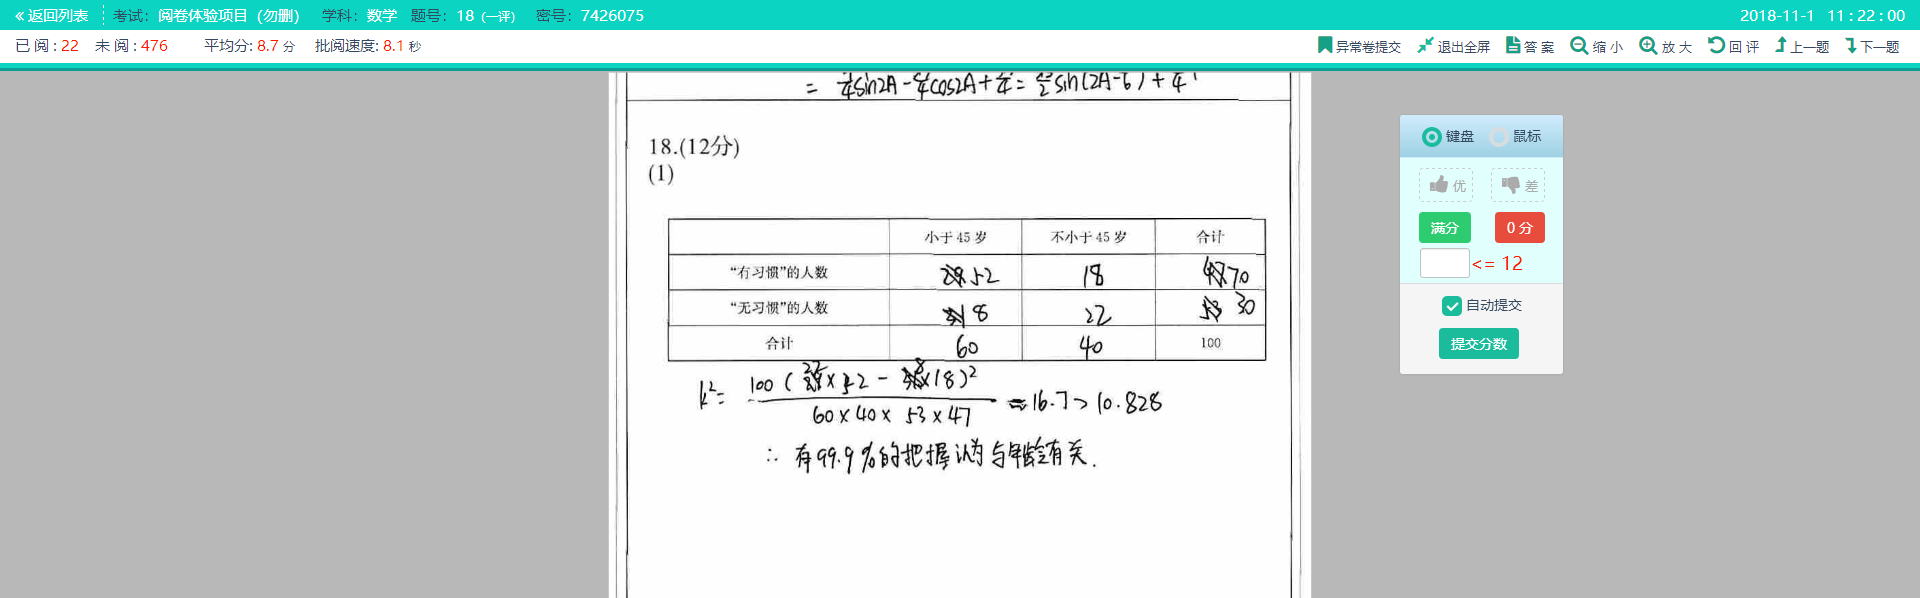 «返回列表 考试: 阅卷体验项目 (勿删) 学科: 数学 题号: 18 (一评) 密号: 7426075 2018-11-1 11 : 22 : 00
已 阅 : 22 未 阅 : 476 平均分: 8.7 分 批阅速度: 8.1 秒 异常卷提交 退出全屏 答 案 缩 小 放 大 回 评 上一题 下一题
= sin2A - cos2A + = sin(2A - ) +
18.(12分)
(1)
小于 45 岁 不小于 45 岁 合计
“有习惯”的人数 52 18 70
“无习惯”的人数 8 22 30
合计 60 40 100
k²= 100 ( 22 × 52 - 8 × 18 )² / 60 × 40 × 53 × 47 ≈ 16.7 > 10.828
∴ 有99.9%的把握认为与年龄有关.
键盘 鼠标
优 差
满分 0 分
<= 12
自动提交
提交分数